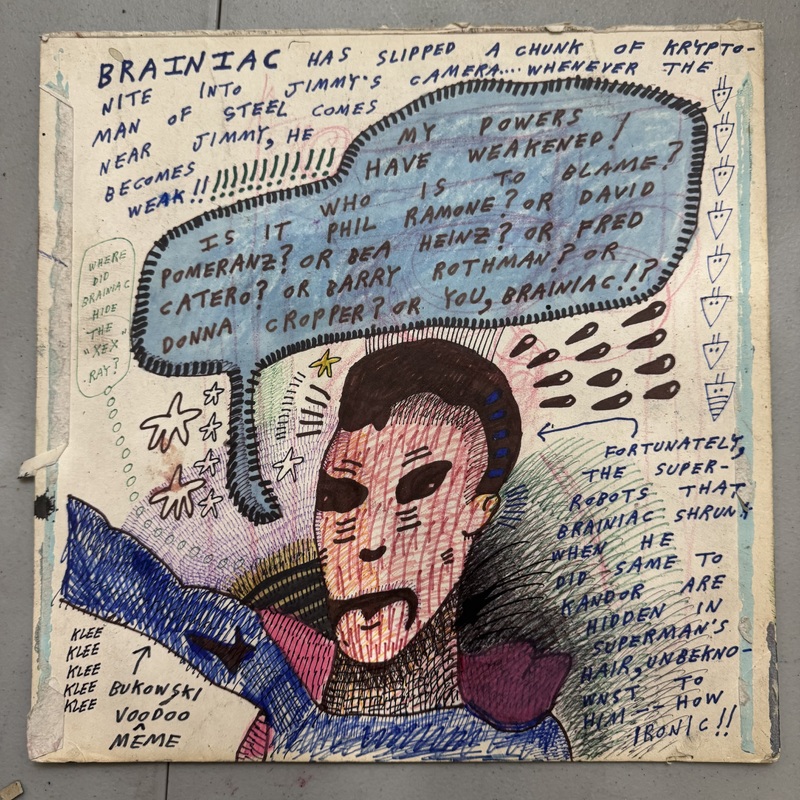 BRAINIAC HAS SLIPPED A CHUNK OF KRYPTO-
NITE INTO JIMMY'S CAMERA.... WHENEVER THE
MAN OF STEEL COMES
NEAR JIMMY, HE
BECOMES
WEAK!!!!!!!!!!!!!
MY POWERS
HAVE WEAKENED!
WHO IS TO BLAME?
IS IT PHIL RAMONE? OR DAVID
POMERANZ? OR BEA HEINZ? OR FRED
CATERO? OR BARRY ROTHMAN? OR
DONNA CROPPER? OR YOU, BRAINIAC!!?
WHERE
DID
BRAINIAC
HIDE
THE
"XEX"
RAY?
FORTUNATELY,
THE SUPER-
ROBOTS THAT
BRAINIAC SHRUNK
WHEN HE
DID SAME TO
KANDOR ARE
HIDDEN IN
SUPERMAN'S
HAIR, UNBEKNO-
WNST TO
HIM -- HOW
IRONIC!!
KLEE
KLEE
KLEE
KLEE
KLEE
BUKOWSKI
VOODOO
MÊME